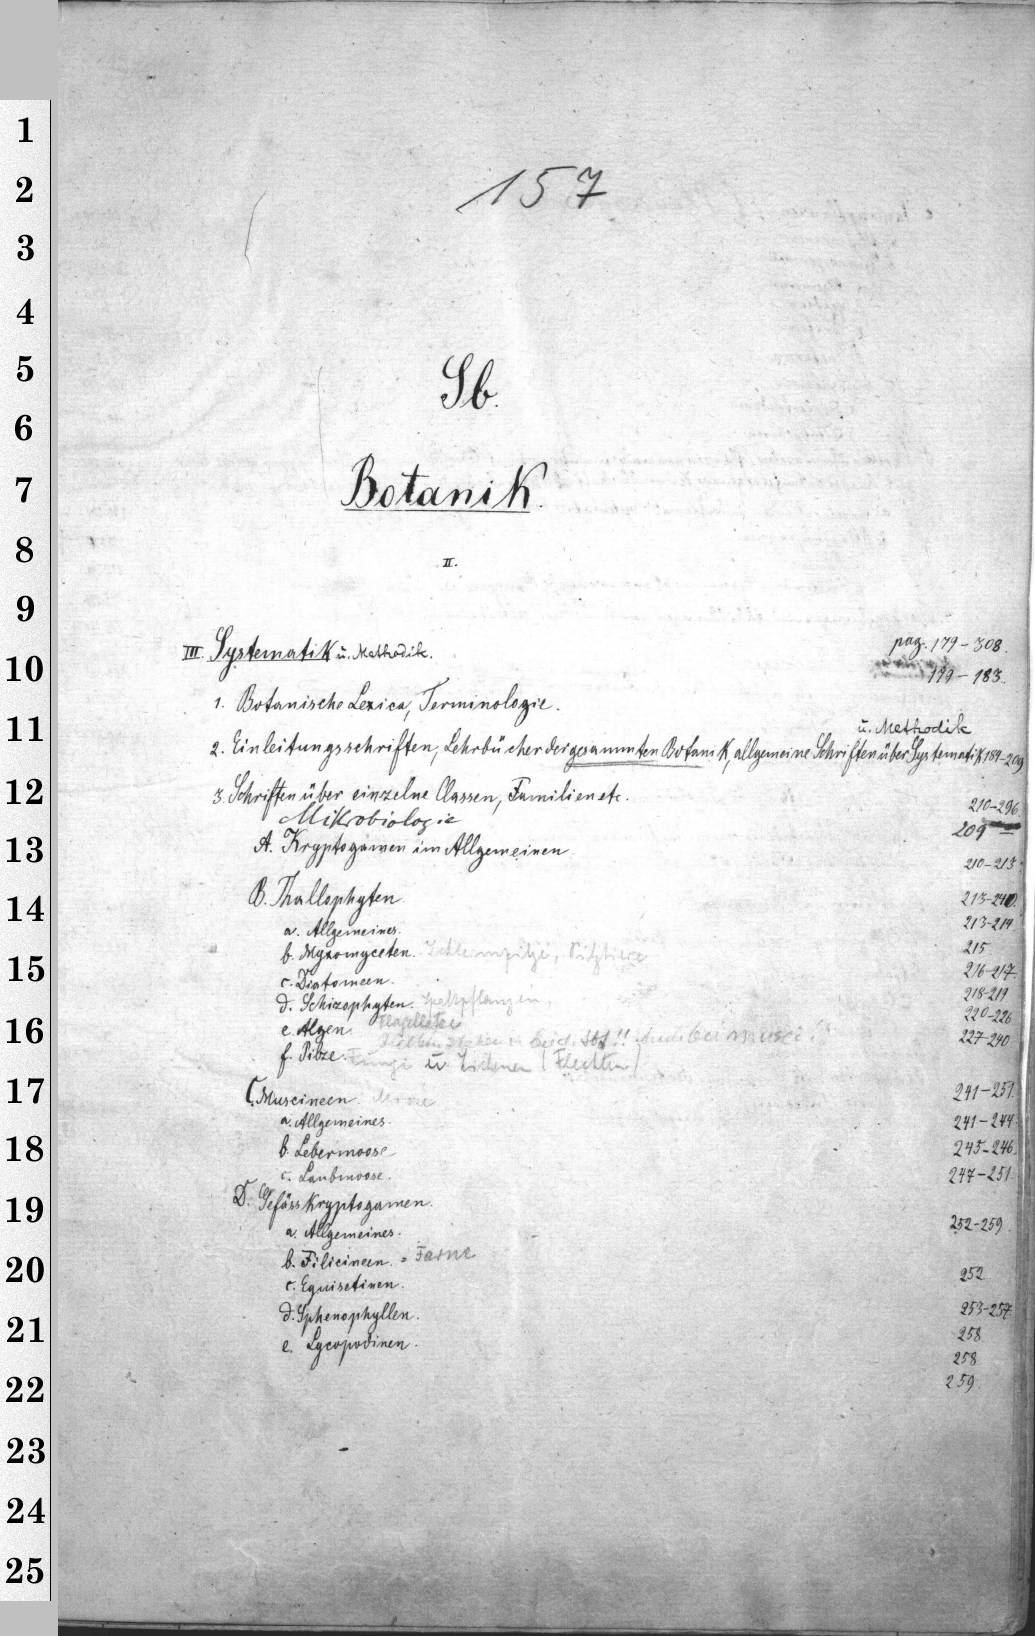 1
2
3
4
5
6
7
8
9
10
11
12
13
14
15
16
17
18
19
20
21
22
23
24
25
157
Sb.
Botanik.
II.
III. Systematik u. Methodik. pag. 179-308.
179-183.
1. Botanische Lexica, Terminologie.
u. Methodik
2. Einleitungsschriften, Lehrbücher der gesammten Botanik, allgemeine Schriften über Systematik 184-209
3. Schriften über einzelne Classen, Familien etc. 210-296
Mikrobiologie 209
A. Kryptogamen im Allgemeinen 210-213
B. Thallophyten 213-240.
a. Allgemeines. 213-214
b. Myxomyceten. Schleimpilze, Pilztiere 215
c. Diatomeen. 216-217.
d. Schizophyten. Spaltpflanzen, 218-219
Flagellaten
e. Algen 220-226
f. Pilze. Fungi u. Lichenen (Flechten) 227-240
C. Muscineen. Moose 241-251.
a. Allgemeines. 241-244
b. Lebermoose 245-246.
c. Laubmoose. 247-251.
D. Gefässkryptogamen. 252-259.
a. Allgemeines. 252
b. Filicineen. = Farne 253-257.
c. Equisetinen. 258
d. Sphenophyllen. 258
e. Lycopodinen. 259.